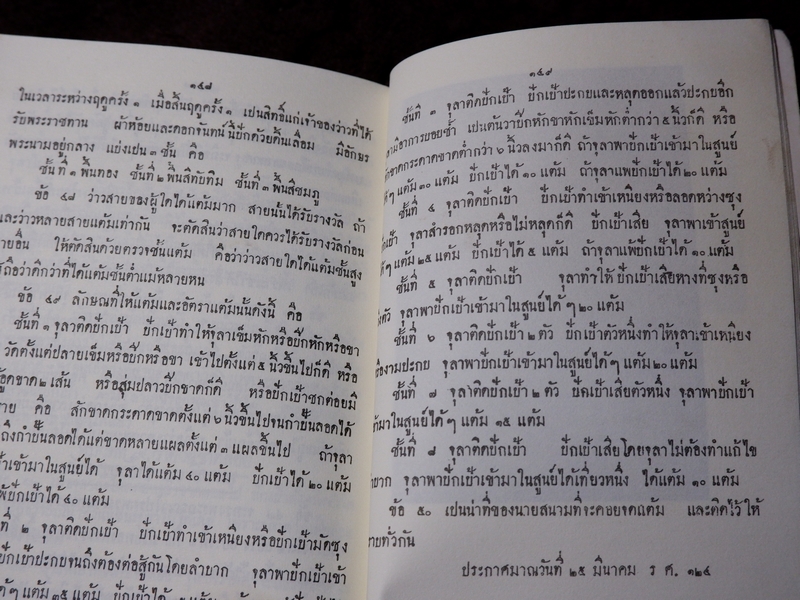 ๑๔๘
ในเวลาระหว่างฤดูครั้ง ๑ เมื่อสิ้นฤดูครั้ง ๑ เปนสิทธิ์แก่เจ้าของว่าวที่ได้
รับพระราชทาน ผ้าห้อยและดอกจันทน์นี้ปักด้วยดิ้นเลื่อม มีอักษร
พระนามอยู่กลาง แบ่งเปน ๓ ชั้น คือ
ชั้นที่ ๑ พื้นทอง ชั้นที่ ๒ พื้นสีทับทิม ชั้นที่ ๓ พื้นสีชมภู
ข้อ ๔๘ ว่าวสายของผู้ใดได้แต้มมาก สายนั้นได้รับรางวัล ถ้า
และว่าวหลายสายแต้มเท่ากัน จะตัดสินว่าสายใดควรได้รับรางวัลก่อน
สายอื่น ให้ตัดสินด้วยตรวจชั้นแต้ม คือว่าว่าวสายใดได้แต้มชั้นสูง
ถือว่าดีกว่าที่ได้แต้มชั้นต่ำแม้หลายหน
ข้อ ๔๙ ลักษณที่ให้แต้มและอัตราแต้มนั้นดังนี้ คือ
ชั้นที่ ๑ จุลาติดปักเป้า ปักเป้าทำให้จุลาเข็มหักหรือปีกหักหรือขา
วัดตั้งแต่ปลายเข็มหรือปีกหรือขา เข้าไปตั้งแต่ ๕ นิ้วขึ้นไปก็ดี หรือ
ขาด ๒ เส้น หรือสุ่มปลาวปีกขาดก็ดี หรือปักเป้าชกต่อยมี
คือ สักขาดกระดาดขาดตั้งแต่ ๖ นิ้วขึ้นไปจนกำปั้นลอดได้
ถึงกำปั้นลอดได้แต่ขาดหลายแผลตั้งแต่ ๓ แผลขึ้นไป ถ้าจุลา
เข้ามาในสูนย์ได้ จุลาได้แต้ม ๔๐ แต้ม ปักเป้าได้ ๒๐ แต้ม
ปักเป้าได้ ๔๐ แต้ม
ที่ ๒ จุลาติดปักเป้า ปักเป้าทำเข้าเหนียงหรือปักเป้ามัดซุง
ปักเป้าปะกบจนถึงต้องต่อสู้กันโดยลำบาก จุลาพาปักเป้าเข้า
ได้ ๆ แต้ม ๓๕ แต้ม
๑๔๙
ชั้นที่ ๓ จุลาติดปักเป้า ปักเป้าปะกบและหลุดออกแล้วปะกบอีก
มีอาการยอบช้ำ เปนต้นว่าปีกหักขาหักเข็มหักต่ำกว่า ๕ นิ้วก็ดี หรือ
ขาดกระดาดขาดต่ำกว่า ๖ นิ้วลงมาก็ดี ถ้าจุลาพาปักเป้าเข้ามาในสูนย์
ได้ ๆ แต้ม ๓๐ แต้ม ปักเป้าได้ ๑๐ แต้ม ถ้าจุลาแพ้ปักเป้าได้ ๒๐ แต้ม
ชั้นที่ ๔ จุลาติดปักเป้า ปักเป้าทำเข้าเหนียงหรือลอดหว่างซุง
จุลาสำรอกหลุดหรือไม่หลุดก็ดี ปักเป้าเสีย จุลาพาเข้าสูนย์
ได้ ๆ แต้ม ๒๕ แต้ม ปักเป้าได้ ๕ แต้ม ถ้าจุลาแพ้ปักเป้าได้ ๑๐ แต้ม
ชั้นที่ ๕ จุลาติดปักเป้า จุลาทำให้ปักเป้าเสียหางที่ซุงหรือ
ตัว จุลาพาปักเป้าเข้ามาในสูนย์ได้ ๆ ๒๐ แต้ม
ชั้นที่ ๖ จุลาติดปักเป้า ๒ ตัว ปักเป้าตัวหนึ่งทำให้จุลาเข้าเหนียง
ปะกบ จุลาพาปักเป้าเข้ามาในสูนย์ได้ ๆ แต้ม ๒๐ แต้ม
ชั้นที่ ๗ จุลาติดปักเป้า ๒ ตัว ปักเป้าเสียตัวหนึ่ง จุลาพาปักเป้า
เข้ามาในสูนย์ได้ ๆ แต้ม ๑๕ แต้ม
ชั้นที่ ๘ จุลาติดปักเป้า ปักเป้าเสียโดยจุลาไม่ต้องทำแก้ไข
จุลาพาปักเป้าเข้ามาในสูนย์ได้เที่ยวหนึ่ง ได้แต้ม ๑๐ แต้ม
ข้อ ๕๐ เปนน่าที่ของนายสนามที่จะคอยจดแต้ม และติดไว้ให้
ทั่วกัน
ประกาศมาณวันที่ ๒๕ มีนาคม ร ศ. ๑๒๔